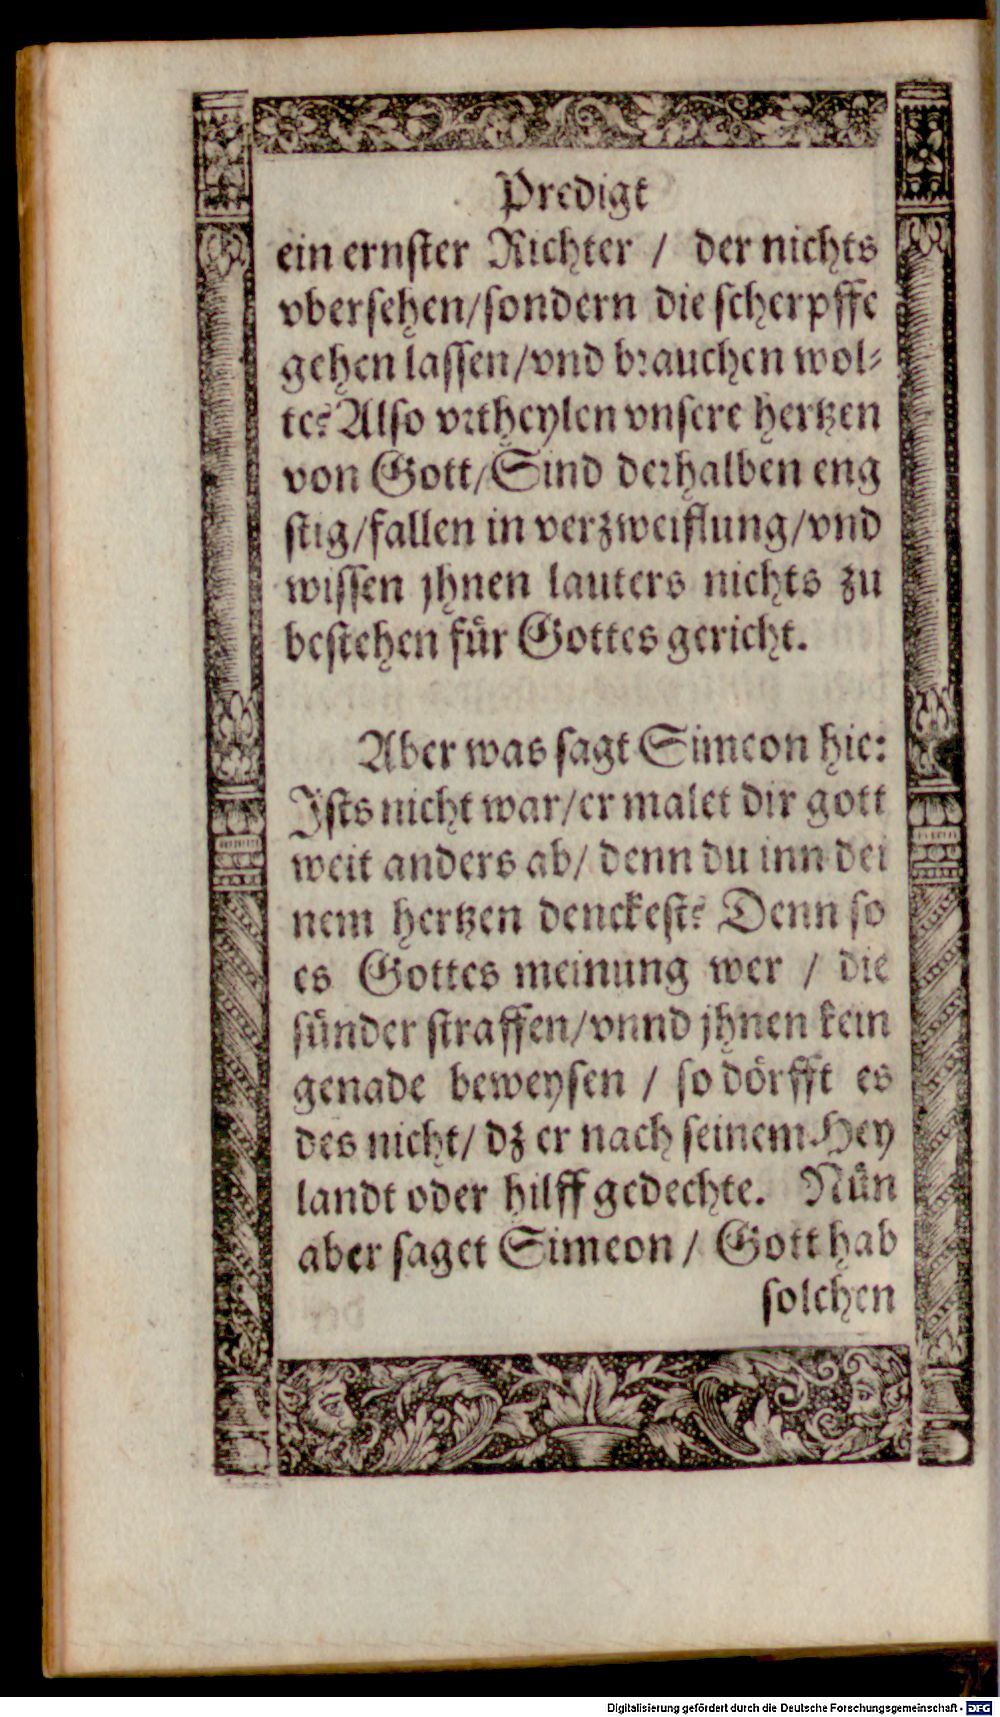 Predigt
ein ernster Richter / der nichts
vbersehen/sondern die scherpffe
gehen lassen/vnd brauchen wol⸗
te? Also vrtheylen vnsere hertzen
von Gott/Sind derhalben eng
stig/fallen in verzweiflung/vnd
wissen jhnen lauters nichts zu
bestehen für Gottes gericht.
Aber was sagt Simeon hie:
Ists nicht war/er malet dir gott
weit anders ab/ denn du inn dei
nem hertzen denckest? Denn so
es Gottes meinung wer / die
sünder straffen/vnnd jhnen kein
genade beweysen / so dörfft es
des nicht/ dz er nach seinem Hey
landt oder hilff gedechte. Nün
aber saget Simeon / Gott hab
solchen
Digitalisierung gefördert durch die Deutsche Forschungsgemeinschaft - DFG